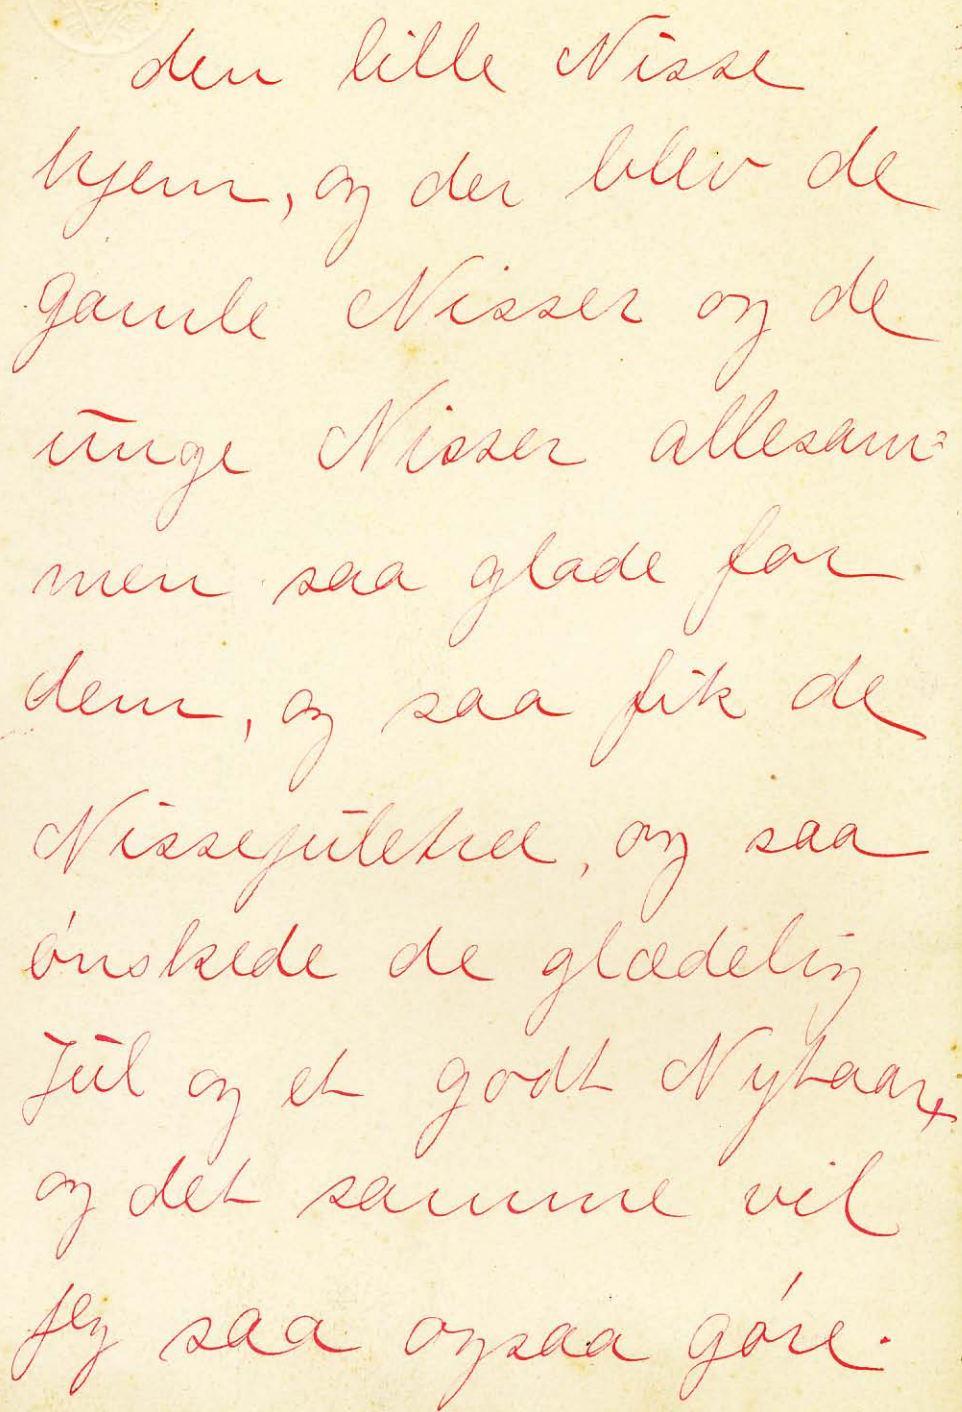 den lille Nisse
hjem, og der blev de
gamle Nisser og de
unge Nisser allesam=
men saa glade for
dem, og saa fik de
Nissejuletræ, og saa
ónskede de glædelig
Jul og et godt Nytaar,
og det samme vil
jeg saa ogsaa góre.